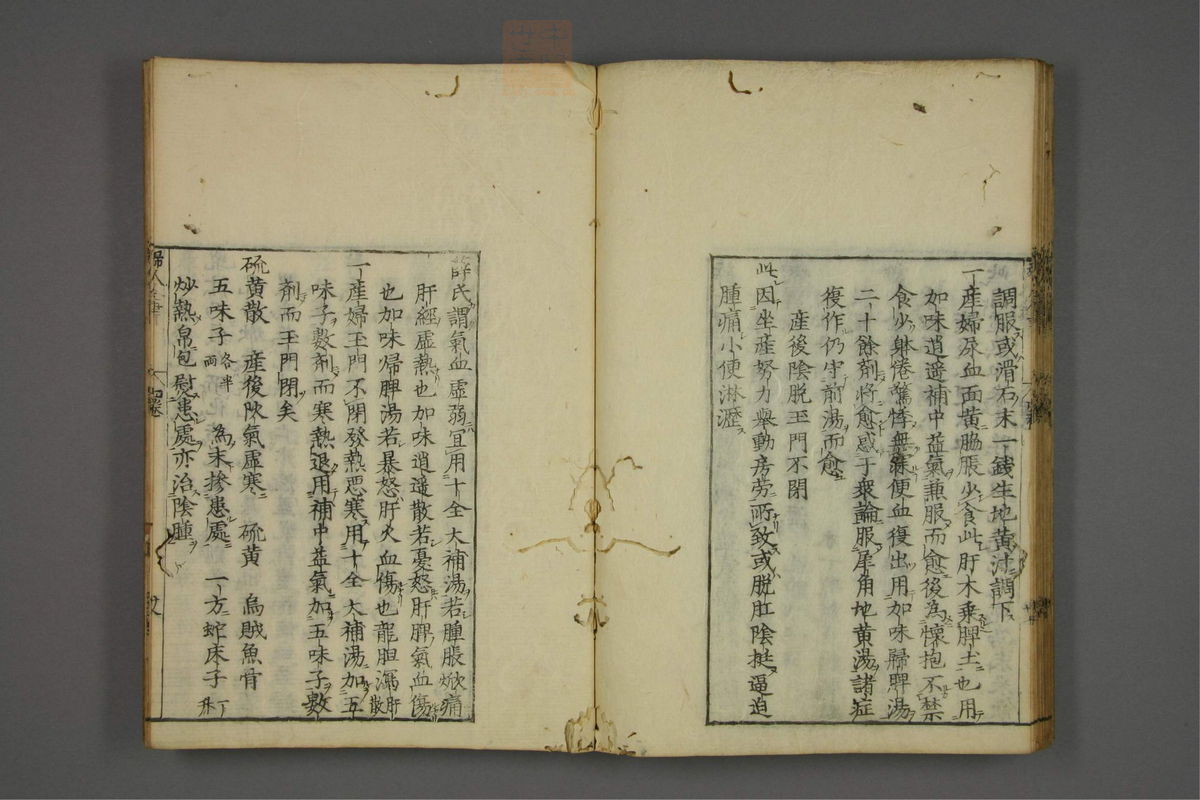 調服或滑石末一錢生地黃汁調下
一産婦尿血面黃脇脹少食此肝木乗脾土也用
加味逍遥補中益氣兼服而愈後為懐抱不禁
食少身倦驚悸無寐便血復出用加味歸脾湯
二十餘劑將愈惑于衆論服犀角地黃湯諸症
復作仍守前湯而愈
産後陰脱玉門不閉
此因坐産努力舉動房劳所致或脱肛陰挺逼迫
腫痛小便淋瀝
薛氏謂氣血虚弱宜用十全大補湯若腫脹焮痛
肝經虚熱也加味逍遥散若憂怒肝脾氣血傷
也加味帰脾湯若暴怒肝火血傷也龍胆瀉肝散
一産婦玉門不閉發熱悪寒用十全大補湯加五
味子數劑而寒熱退用補中益氣加五味子數
劑而玉門閉矣
硫黃散 産後陰氣虚寒 硫黃 烏賊魚骨
五味子各半兩 為末掺患處 一方蛇床子一升
炒熱帛包熨患處亦治陰腫